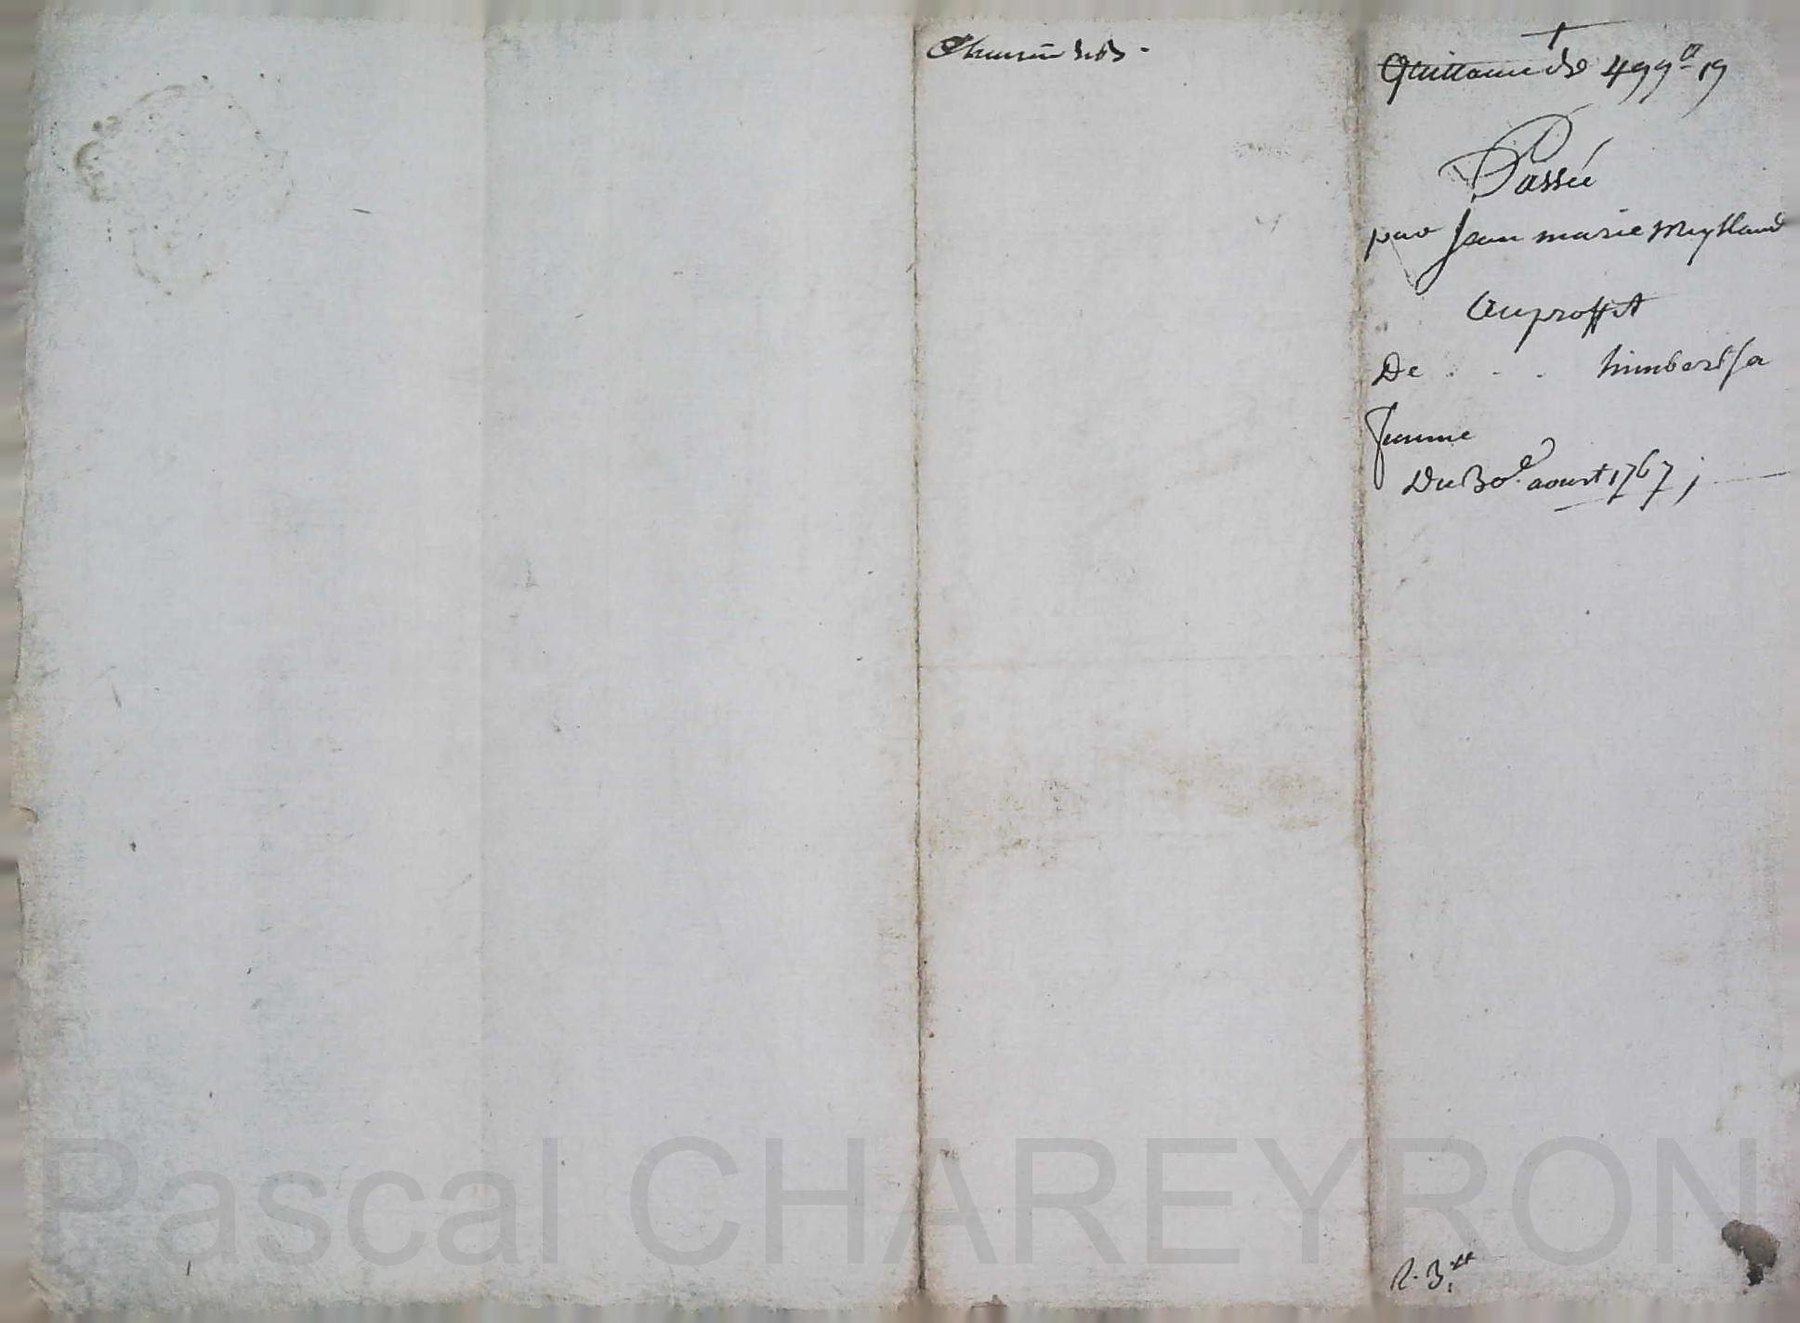 Quittance de 499 ₶ 19
Passée
par Jean marie Meyssand
au proffit
De . . . himbert sa
femme
Du 30e aoust 1767 ;
R. 3 ₶
Pascal CHAREYRON